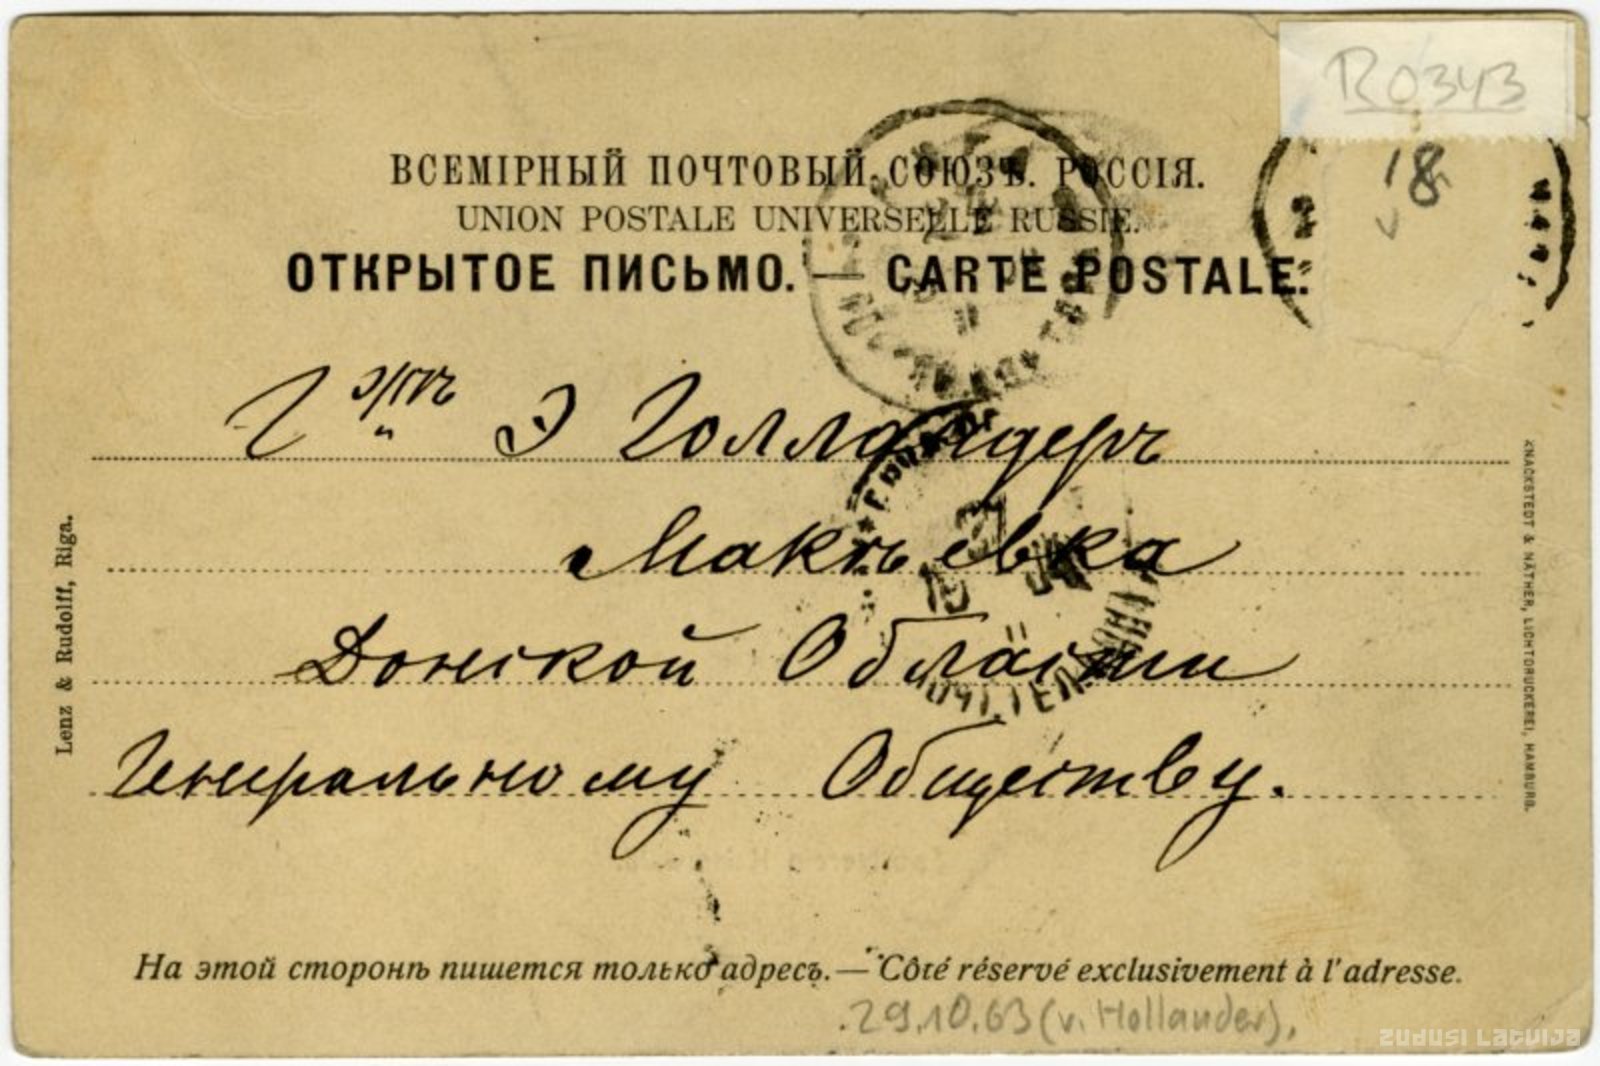 R0343
18
v
ВСЕМІРНЫЙ ПОЧТОВЫЙ СОЮЗЪ. РОССІЯ.
UNION POSTALE UNIVERSELLE RUSSIE.
ОТКРЫТОЕ ПИСЬМО. — CARTE POSTALE.
Э Голландеръ
Макѣевка
Донской Области
Генеральному Обществу.
На этой сторонѣ пишется только адресъ. — Côté réservé exclusivement à l'adresse.
29.10.63 (v. Hollander).
Lenz & Rudolff, Riga.
KNACKSTEDT & NÄTHER, LICHTDRUCKEREI, HAMBURG.
ZUDUSI LATVIJA